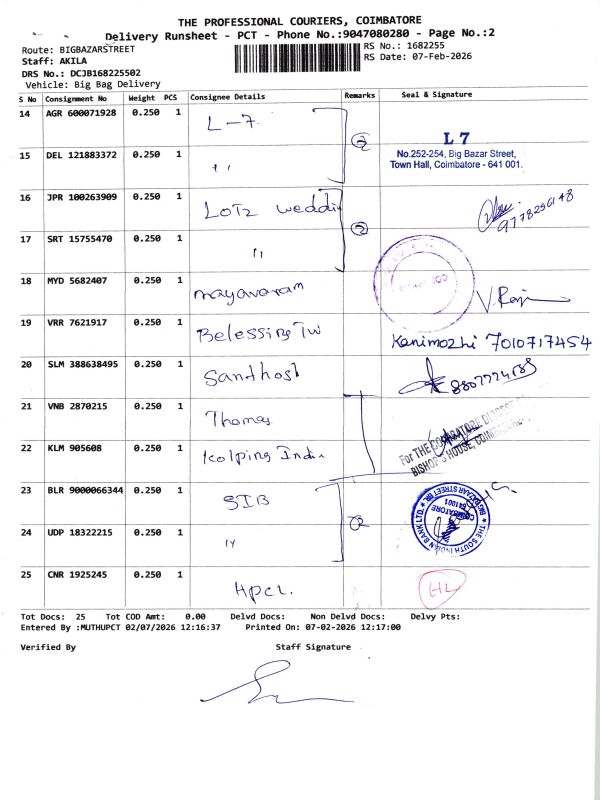 THE PROFESSIONAL COURIERS, COIMBATORE
Delivery Runsheet - PCT - Phone No.:9047080280 - Page No.:2
Route: BIGBAZARSTREET
RS No.: 1682255
Staff: AKILA
RS Date: 07-Feb-2026
DRS No.: DCJB168225502
Vehicle: Big Bag Delivery
S No Consignment No Weight PCS Consignee Details Remarks Seal & Signature
14 AGR 600071928 0.250 1 L-7 2
L 7
No.252-254, Big Bazar Street,
Town Hall, Coimbatore - 641 001.
15 DEL 121883372 0.250 1 "
16 JPR 100263909 0.250 1 LOTZ weddin 2
9778256148
17 SRT 15755470 0.250 1 "
18 MYD 5682407 0.250 1 mayavaram
V. Raji
19 VRR 7621917 0.250 1 Belessing Twi Kanimozhi 7010717454
20 SLM 388638495 0.250 1 Santhosh
21 VNB 2870215 0.250 1 Thomas
For THE COIMBATORE DIOCESE
BISHOP'S HOUSE, COIMBATORE
22 KLM 905608 0.250 1 Kolping India
23 BLR 9000066344 0.250 1 SIB 2
THE SOUTH INDIAN BANK LTD. BIG BAZAAR STREET BR.
COIMBATORE
641001
24 UDP 18322215 0.250 1 "
25 CNR 1925245 0.250 1 HPCL
Tot Docs: 25 Tot COD Amt: 0.00 Delvd Docs: Non Delvd Docs: Delvy Pts:
Entered By :MUTHUPCT 02/07/2026 12:16:37 Printed On: 07-02-2026 12:17:00
Verified By Staff Signature